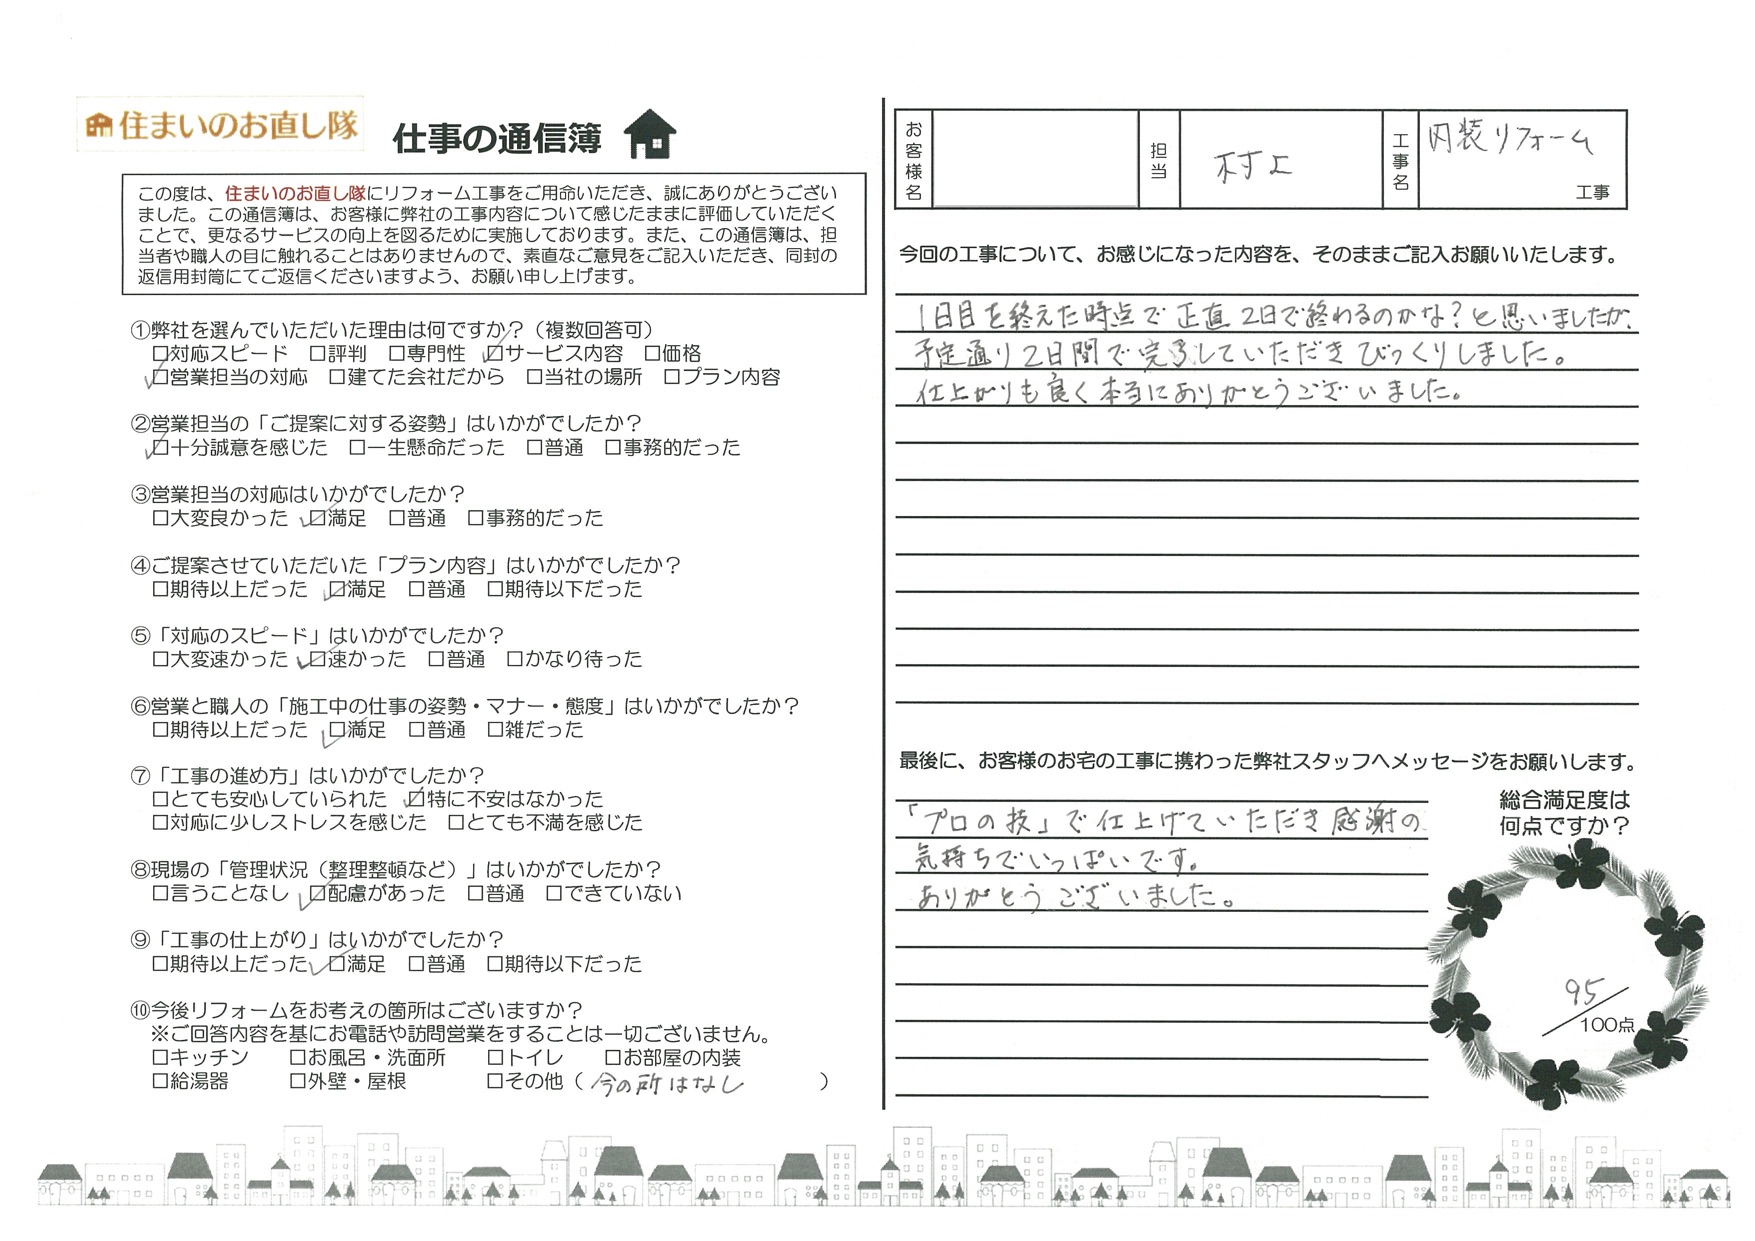 住まいのお直し隊
仕事の通信簿
この度は、住まいのお直し隊にリフォーム工事をご用命いただき、誠にありがとうござい
ました。この通信簿は、お客様に弊社の工事内容について感じたままに評価していただく
ことで、更なるサービスの向上を図るために実施しております。また、この通信簿は、担
当者や職人の目に触れることはありませんので、素直なご意見をご記入いただき、同封の
返信用封筒にてご返信くださいますよう、お願い申し上げます。
①弊社を選んでいただいた理由は何ですか？（複数回答可）
□対応スピード □評判 □専門性 ☑サービス内容 □価格
☑営業担当の対応 □建てた会社だから □当社の場所 □プラン内容
②営業担当の「ご提案に対する姿勢」はいかがでしたか？
☑十分誠意を感じた □一生懸命だった □普通 □事務的だった
③営業担当の対応はいかがでしたか？
□大変良かった ☑満足 □普通 □事務的だった
④ご提案させていただいた「プラン内容」はいかがでしたか？
□期待以上だった ☑満足 □普通 □期待以下だった
⑤「対応のスピード」はいかがでしたか？
□大変速かった ☑速かった □普通 □かなり待った
⑥営業と職人の「施工中の仕事の姿勢・マナー・態度」はいかがでしたか？
□期待以上だった ☑満足 □普通 □雑だった
⑦「工事の進め方」はいかがでしたか？
□とても安心していられた ☑特に不安はなかった
□対応に少しストレスを感じた □とても不満を感じた
⑧現場の「管理状況（整理整頓など）」はいかがでしたか？
□言うことなし ☑配慮があった □普通 □できていない
⑨「工事の仕上がり」はいかがでしたか？
□期待以上だった ☑満足 □普通 □期待以下だった
⑩今後リフォームをお考えの箇所はございますか？
※ご回答内容を基にお電話や訪問営業をすることは一切ございません。
□キッチン □お風呂・洗面所 □トイレ □お部屋の内装
□給湯器 □外壁・屋根 □その他（今の所はなし）
お客様名
担当 村上
工事名 内装リフォーム
工事
今回の工事について、お感じになった内容を、そのままご記入お願いいたします。
1日目を終えた時点で正直2日で終わるのかな？と思いましたが、
予定通り2日間で完了していただきびっくりしました。
仕上がりも良く本当にありがとうございました。
最後に、お客様のお宅の工事に携わった弊社スタッフへメッセージをお願いします。
「プロの技」で仕上げていただき感謝の
気持ちでいっぱいです。
ありがとうございました。
総合満足度は
何点ですか？
95
100点